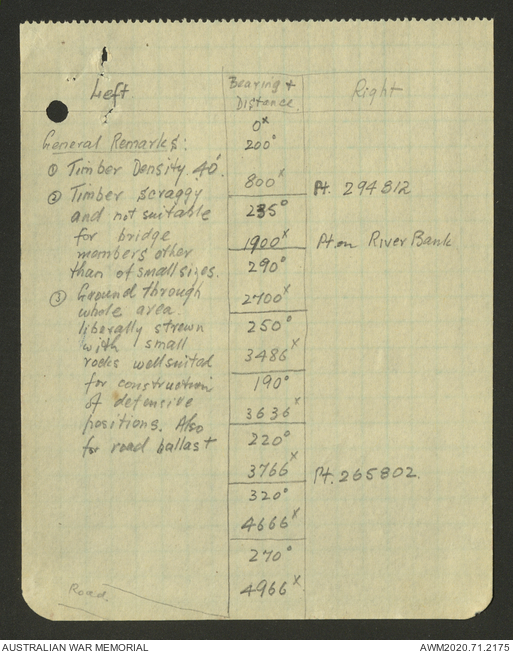 Left
Bearing +
Distance.
Right
General Remarks:
① Timber Density 40'.
② Timber scraggy
and not suitable
for bridge
members other
than of small sizes.
③ Ground through
whole area
liberally strewn
with small
rocks well suited
for construction
of defensive
positions. Also
for road ballast
Road
0x
200°
800x
235°
1900x
290°
2700x
250°
3486x
190°
3636x
220°
3766x
320°
4666x
270°
4966x
Pt. 294812
Pt on River Bank
Pt. 265802.
AUSTRALIAN WAR MEMORIAL
AWM2020.71.2175